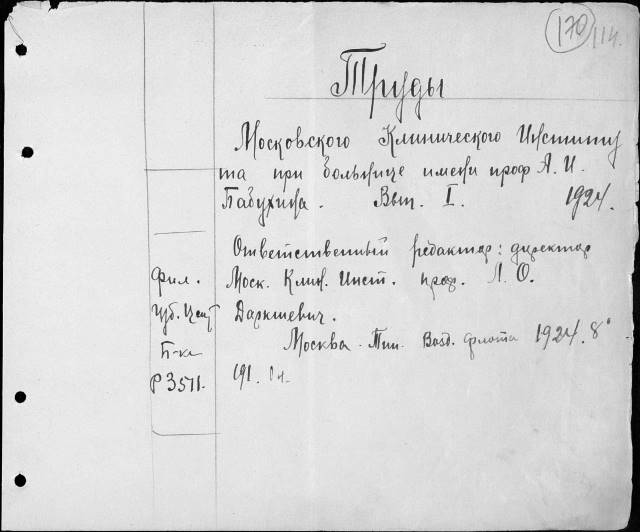 170 114.
Труды
Московского Клинического Институ
та при больнице имени проф А. И.
Бабухина. Вып. I. 1924.
Ответственный редактор: директор
Моск. Клин. Инст. проф. Л. О.
Даркшевич.
Москва. Тип. Возд. флота 1924. 8°
191.
Фил.
Губ. Цент
Б-ка
Р 3511.